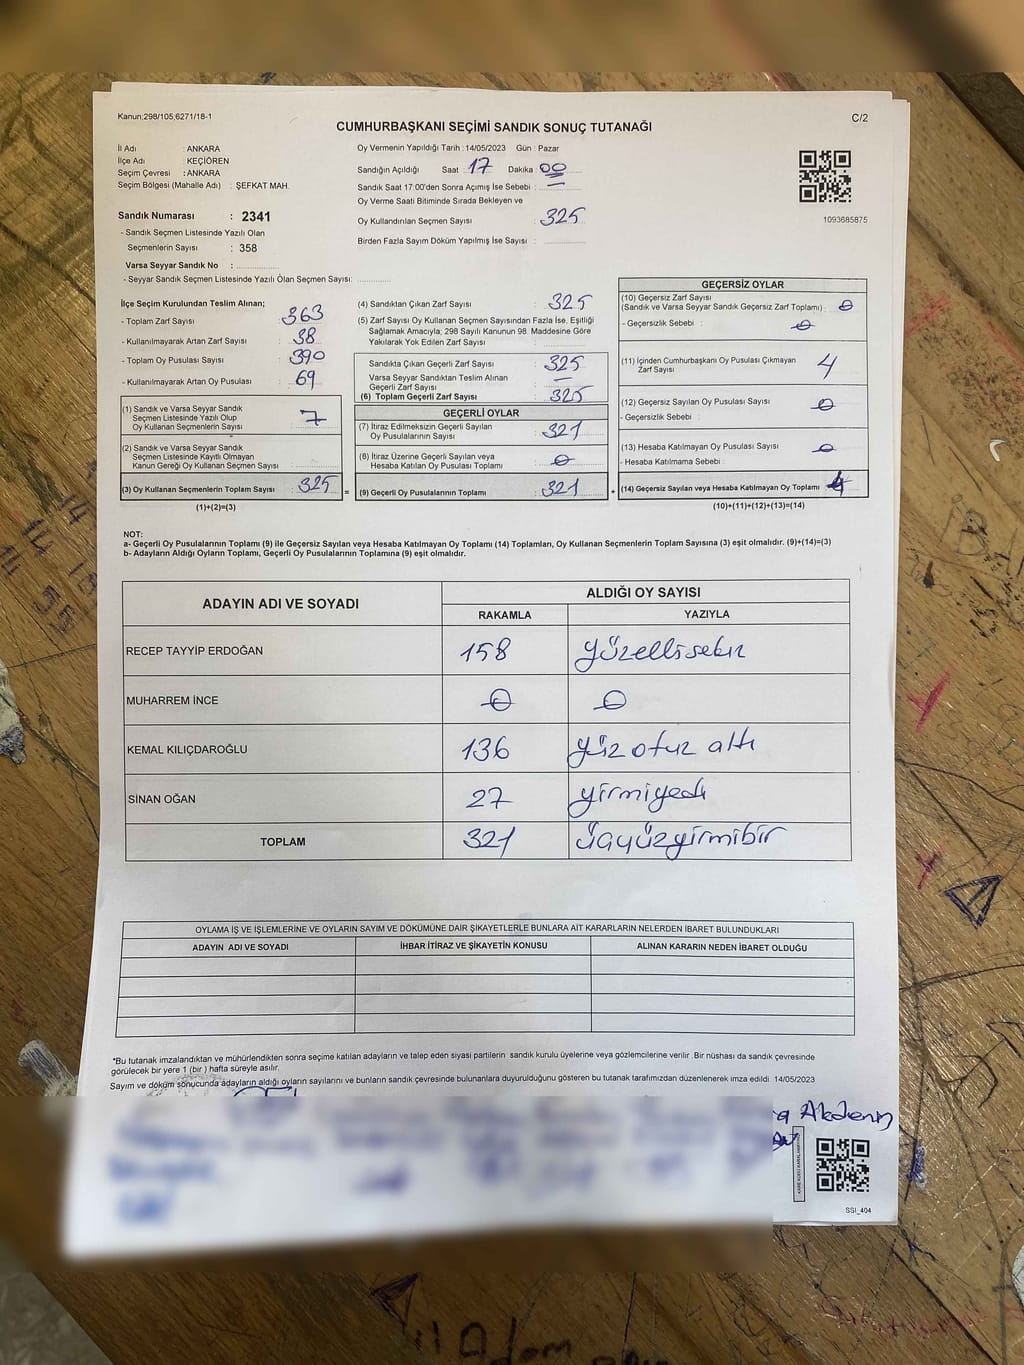 Kanun;298/105,6271/18-1
C/2
CUMHURBAŞKANI SEÇİMİ SANDIK SONUÇ TUTANAĞI
İl Adı : ANKARA
İlçe Adı : KEÇİÖREN
Seçim Çevresi : ANKARA
Seçim Bölgesi (Mahalle Adı) : ŞEFKAT MAH.
Sandık Numarası : 2341
- Sandık Seçmen Listesinde Yazılı Olan
Seçmenlerin Sayısı : 358
Varsa Seyyar Sandık No :
- Seyyar Sandık Seçmen Listesinde Yazılı Olan Seçmen Sayısı:
Oy Vermenin Yapıldığı Tarih : 14/05/2023 Gün : Pazar
Sandığın Açıldığı Saat : 17 Dakika : 00
Sandık Saat 17:00'den Sonra Açımış İse Sebebi : —
Oy Verme Saati Bitiminde Sırada Bekleyen ve
Oy Kullandırılan Seçmen Sayısı : 325
Birden Fazla Sayım Döküm Yapılmış İse Sayısı :
1093685875
İlçe Seçim Kurulundan Teslim Alınan;
- Toplam Zarf Sayısı : 363
- Kullanılmayarak Artan Zarf Sayısı : 38
- Toplam Oy Pusulası Sayısı : 390
- Kullanılmayarak Artan Oy Pusulası : 69
(1) Sandık ve Varsa Seyyar Sandık
Seçmen Listesinde Yazılı Olup
Oy Kullanan Seçmenlerin Sayısı : 7
(2) Sandık ve Varsa Seyyar Sandık
Seçmen Listesinde Kayıtlı Olmayan
Kanun Gereği Oy Kullanan Seçmen Sayısı :
(3) Oy Kullanan Seçmenlerin Toplam Sayısı : 325
(1)+(2)=(3)
(4) Sandıktan Çıkan Zarf Sayısı : 325
(5) Zarf Sayısı Oy Kullanan Seçmen Sayısından Fazla İse, Eşitliği
Sağlamak Amacıyla; 298 Sayılı Kanunun 98. Maddesine Göre
Yakılarak Yok Edilen Zarf Sayısı :
Sandıkta Çıkan Geçerli Zarf Sayısı : 325
Varsa Seyyar Sandıktan Teslim Alınan
Geçerli Zarf Sayısı : —
(6) Toplam Geçerli Zarf Sayısı : 325
GEÇERLİ OYLAR
(7) İtiraz Edilmeksizin Geçerli Sayılan
Oy Pusulalarının Sayısı : 321
(8) İtiraz Üzerine Geçerli Sayılan veya
Hesaba Katılan Oy Pusulası Toplamı : 0
= (9) Geçerli Oy Pusulalarının Toplamı : 321 +
GEÇERSİZ OYLAR
(10) Geçersiz Zarf Sayısı
(Sandık ve Varsa Seyyar Sandık Geçersiz Zarf Toplamı) : 0
- Geçersizlik Sebebi : 0
(11) İçinden Cumhurbaşkanı Oy Pusulası Çıkmayan
Zarf Sayısı : 4
(12) Geçersiz Sayılan Oy Pusulası Sayısı : 0
- Geçersizlik Sebebi :
(13) Hesaba Katılmayan Oy Pusulası Sayısı : 0
- Hesaba Katılmama Sebebi :
(14) Geçersiz Sayılan veya Hesaba Katılmayan Oy Toplamı : 4
(10)+(11)+(12)+(13)=(14)
NOT:
a- Geçerli Oy Pusulalarının Toplamı (9) ile Geçersiz Sayılan veya Hesaba Katılmayan Oy Toplamı (14) Toplamları, Oy Kullanan Seçmenlerin Toplam Sayısına (3) eşit olmalıdır. (9)+(14)=(3)
b- Adayların Aldığı Oyların Toplamı, Geçerli Oy Pusulalarının Toplamına (9) eşit olmalıdır.
ADAYIN ADI VE SOYADI ALDIĞI OY SAYISI
RAKAMLA YAZIYLA
RECEP TAYYİP ERDOĞAN 158 yüzellisekiz
MUHARREM İNCE 0 0
KEMAL KILIÇDAROĞLU 136 yüz otuz altı
SİNAN OĞAN 27 yirmiyedi
TOPLAM 321 üçyüzyirmibir
OYLAMA İŞ VE İŞLEMLERİNE VE OYLARIN SAYIM VE DÖKÜMÜNE DAİR ŞİKAYETLERLE BUNLARA AİT KARARLARIN NELERDEN İBARET BULUNDUKLARI
ADAYIN ADI VE SOYADI İHBAR İTİRAZ VE ŞİKAYETİN KONUSU ALINAN KARARIN NEDEN İBARET OLDUĞU
*Bu tutanak imzalandıktan ve mühürlendikten sonra seçime katılan adayların ve talep eden siyasi partilerin sandık kurulu üyelerine veya gözlemcilerine verilir. Bir nüshası da sandık çevresinde
görülecek bir yere 1 (bir) hafta süreyle asılır.
Sayım ve döküm sonucunda adayların aldığı oyların sayılarını ve bunların sandık çevresinde bulunanlara duyurulduğunu gösteren bu tutanak tarafımızdan düzenlenerek imza edildi. 14/05/2023
Akdenız
SSI_404